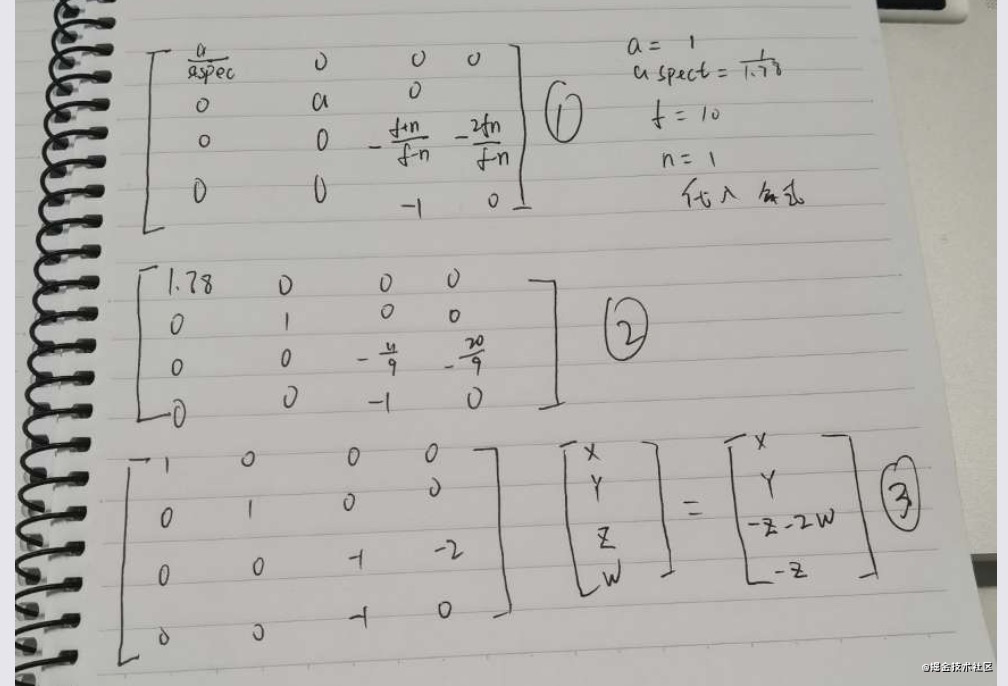 a/aspec 0 0 0
0 a 0
0 0 -f+n/f-n -2fn/f-n
0 0 -1 0
①
a = 1
aspect = 1/1.78
f = 10
n = 1
代入公式
1.78 0 0 0
0 1 0 0
0 0 -11/9 -20/9
0 0 -1 0
②
1 0 0 0
0 1 0 0
0 0 -1 -2
0 0 -1 0
X
Y
Z
W
=
X
Y
-Z-2W
-Z
③
@掘金技术社区